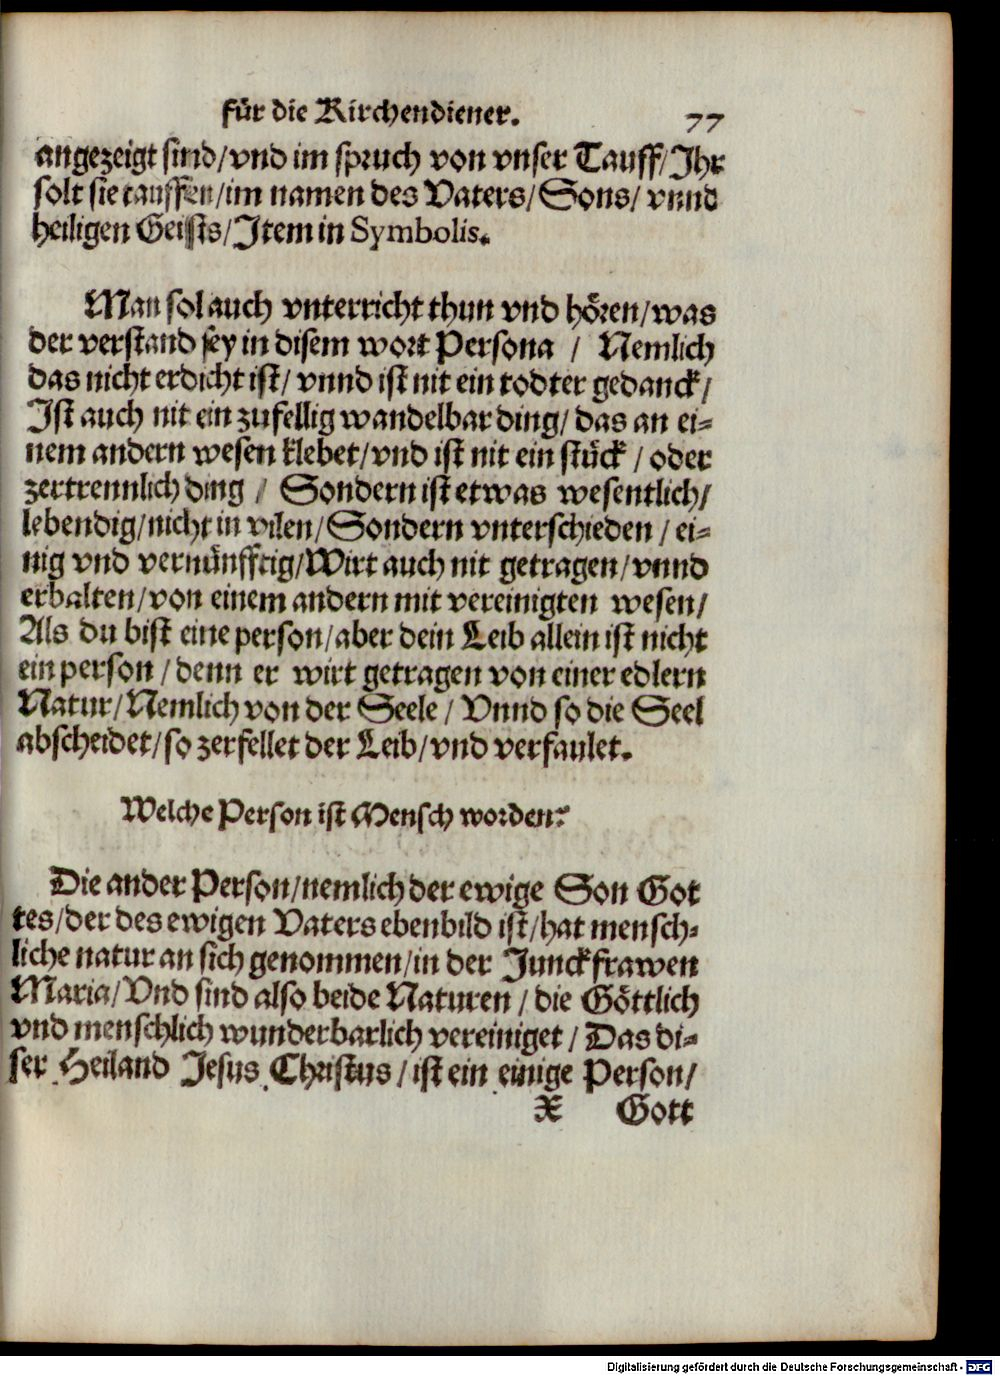 für die Kirchendiener. 77
angezeigt sind/vnd im spruch von vnser Tauff/Ihr
solt sie tauffen/im namen des Vaters/Sons/ vnnd
heiligen Geists/Item in Symbolis.
Man sol auch vnterricht thun vnd hören/was
der verstand sey in disem wort Persona / Nemlich
das nicht erdicht ist/ vnnd ist nit ein todter gedanck/
Ist auch nit ein zufellig wandelbar ding/ das an ei=
nem andern wesen klebet/vnd ist nit ein stück / oder
zertrennlich ding / Sondern ist etwas wesentlich/
lebendig/nicht in vilen/Sondern vnterschieden / ei=
nig vnd vernünfftig/Wirt auch nit getragen/vnnd
erhalten/von einem andern mit vereinigten wesen/
Als du bist eine person/aber dein Leib allein ist nicht
ein person / denn er wirt getragen von einer edlern
Natur/Nemlich von der Seele / Vnnd so die Seel
abscheidet/so zerfellet der Leib/vnd verfaulet.
Welche Person ist Mensch worden?
Die ander Person/nemlich der ewige Son Got
tes/der des ewigen Vaters ebenbild ist/hat mensch=
liche natur an sich genommen/in der Junckfrawen
Maria/Vnd sind also beide Naturen / die Göttlich
vnd menschlich wunderbarlich vereiniget / Das di=
ser Heiland Jesus Christus / ist ein einige Person/
X Gott
Digitalisierung gefördert durch die Deutsche Forschungsgemeinschaft - DFG